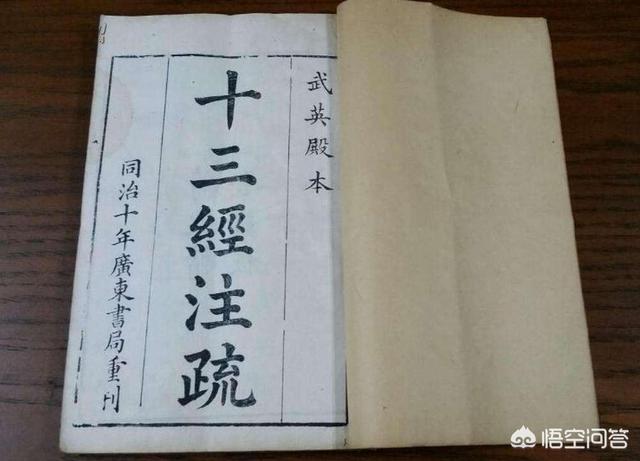 武英殿本
十三經注疏
同治十年廣東書局重刊
悟空问答